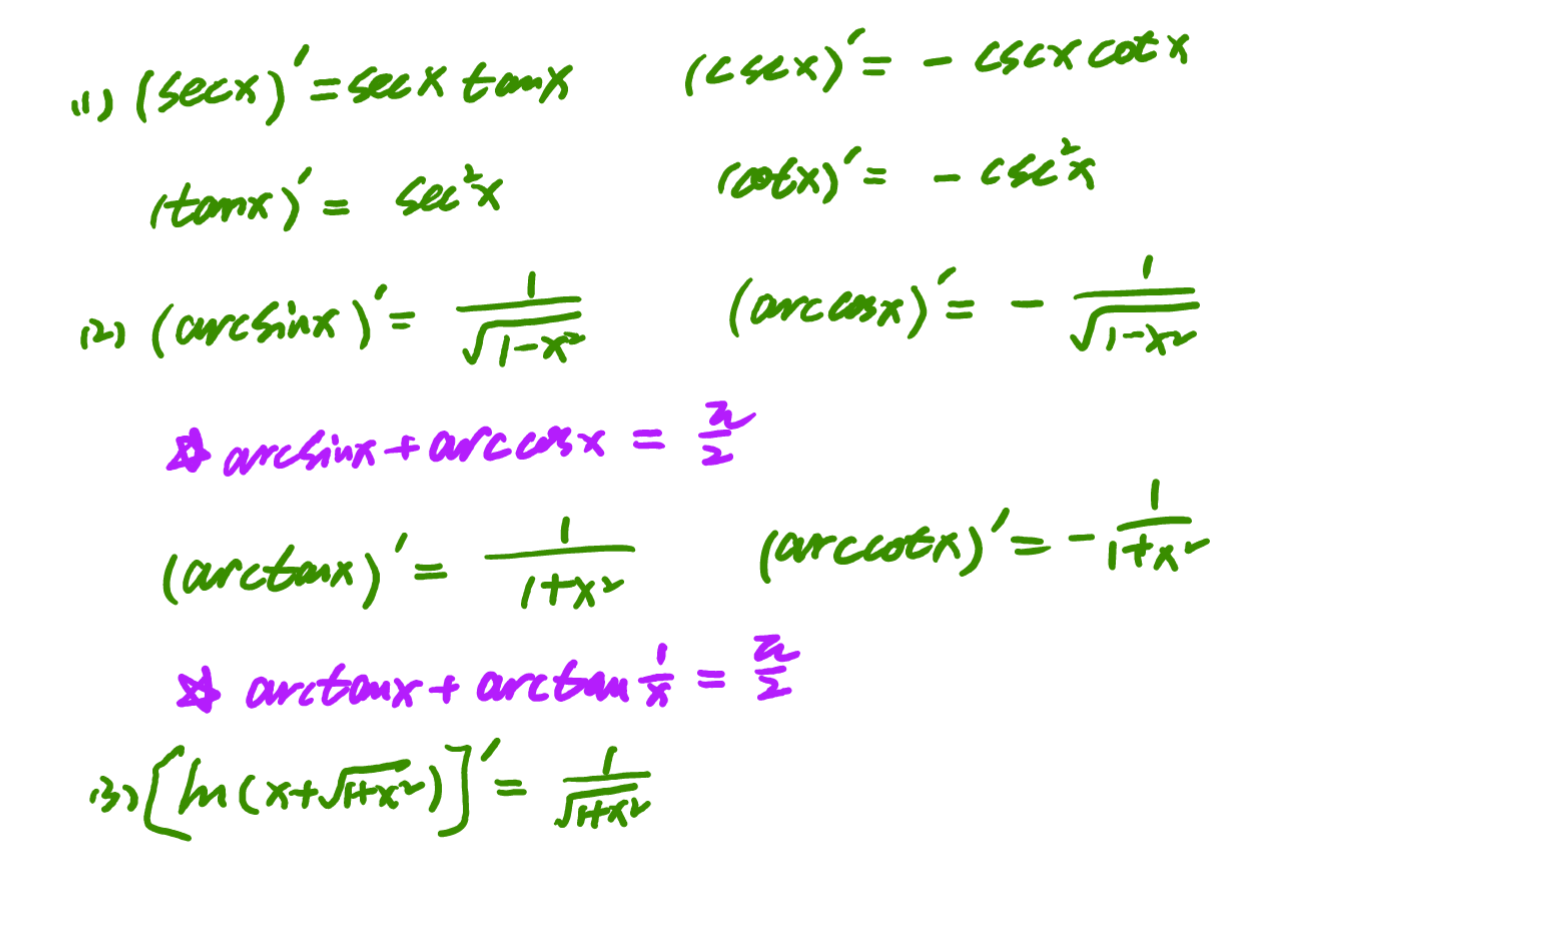 (1) (secx)′=secx tanx (cscx)′= - cscx cotx
(tanx)′= sec²x (cotx)′= - csc²x
(2) (arcsinx)′= 1/√(1-x²) (arccosx)′= - 1/√(1-x²)
☆ arcsinx+arccosx = π/2
(arctanx)′= 1/(1+x²) (arccotx)′= - 1/(1+x²)
☆ arctanx+arctan 1/x = π/2
(3) [ln(x+√(1+x²))]′= 1/√(1+x²)